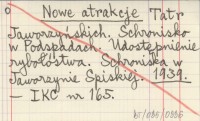 Nowe atrakcje Tatr
Jaworzyńskich. Schronisko
w Podspadach. Udostępnienie
rybołóstwa. Schroniska w
Jaworzynie Spiskiej. 1939.
— IKC nr 165.